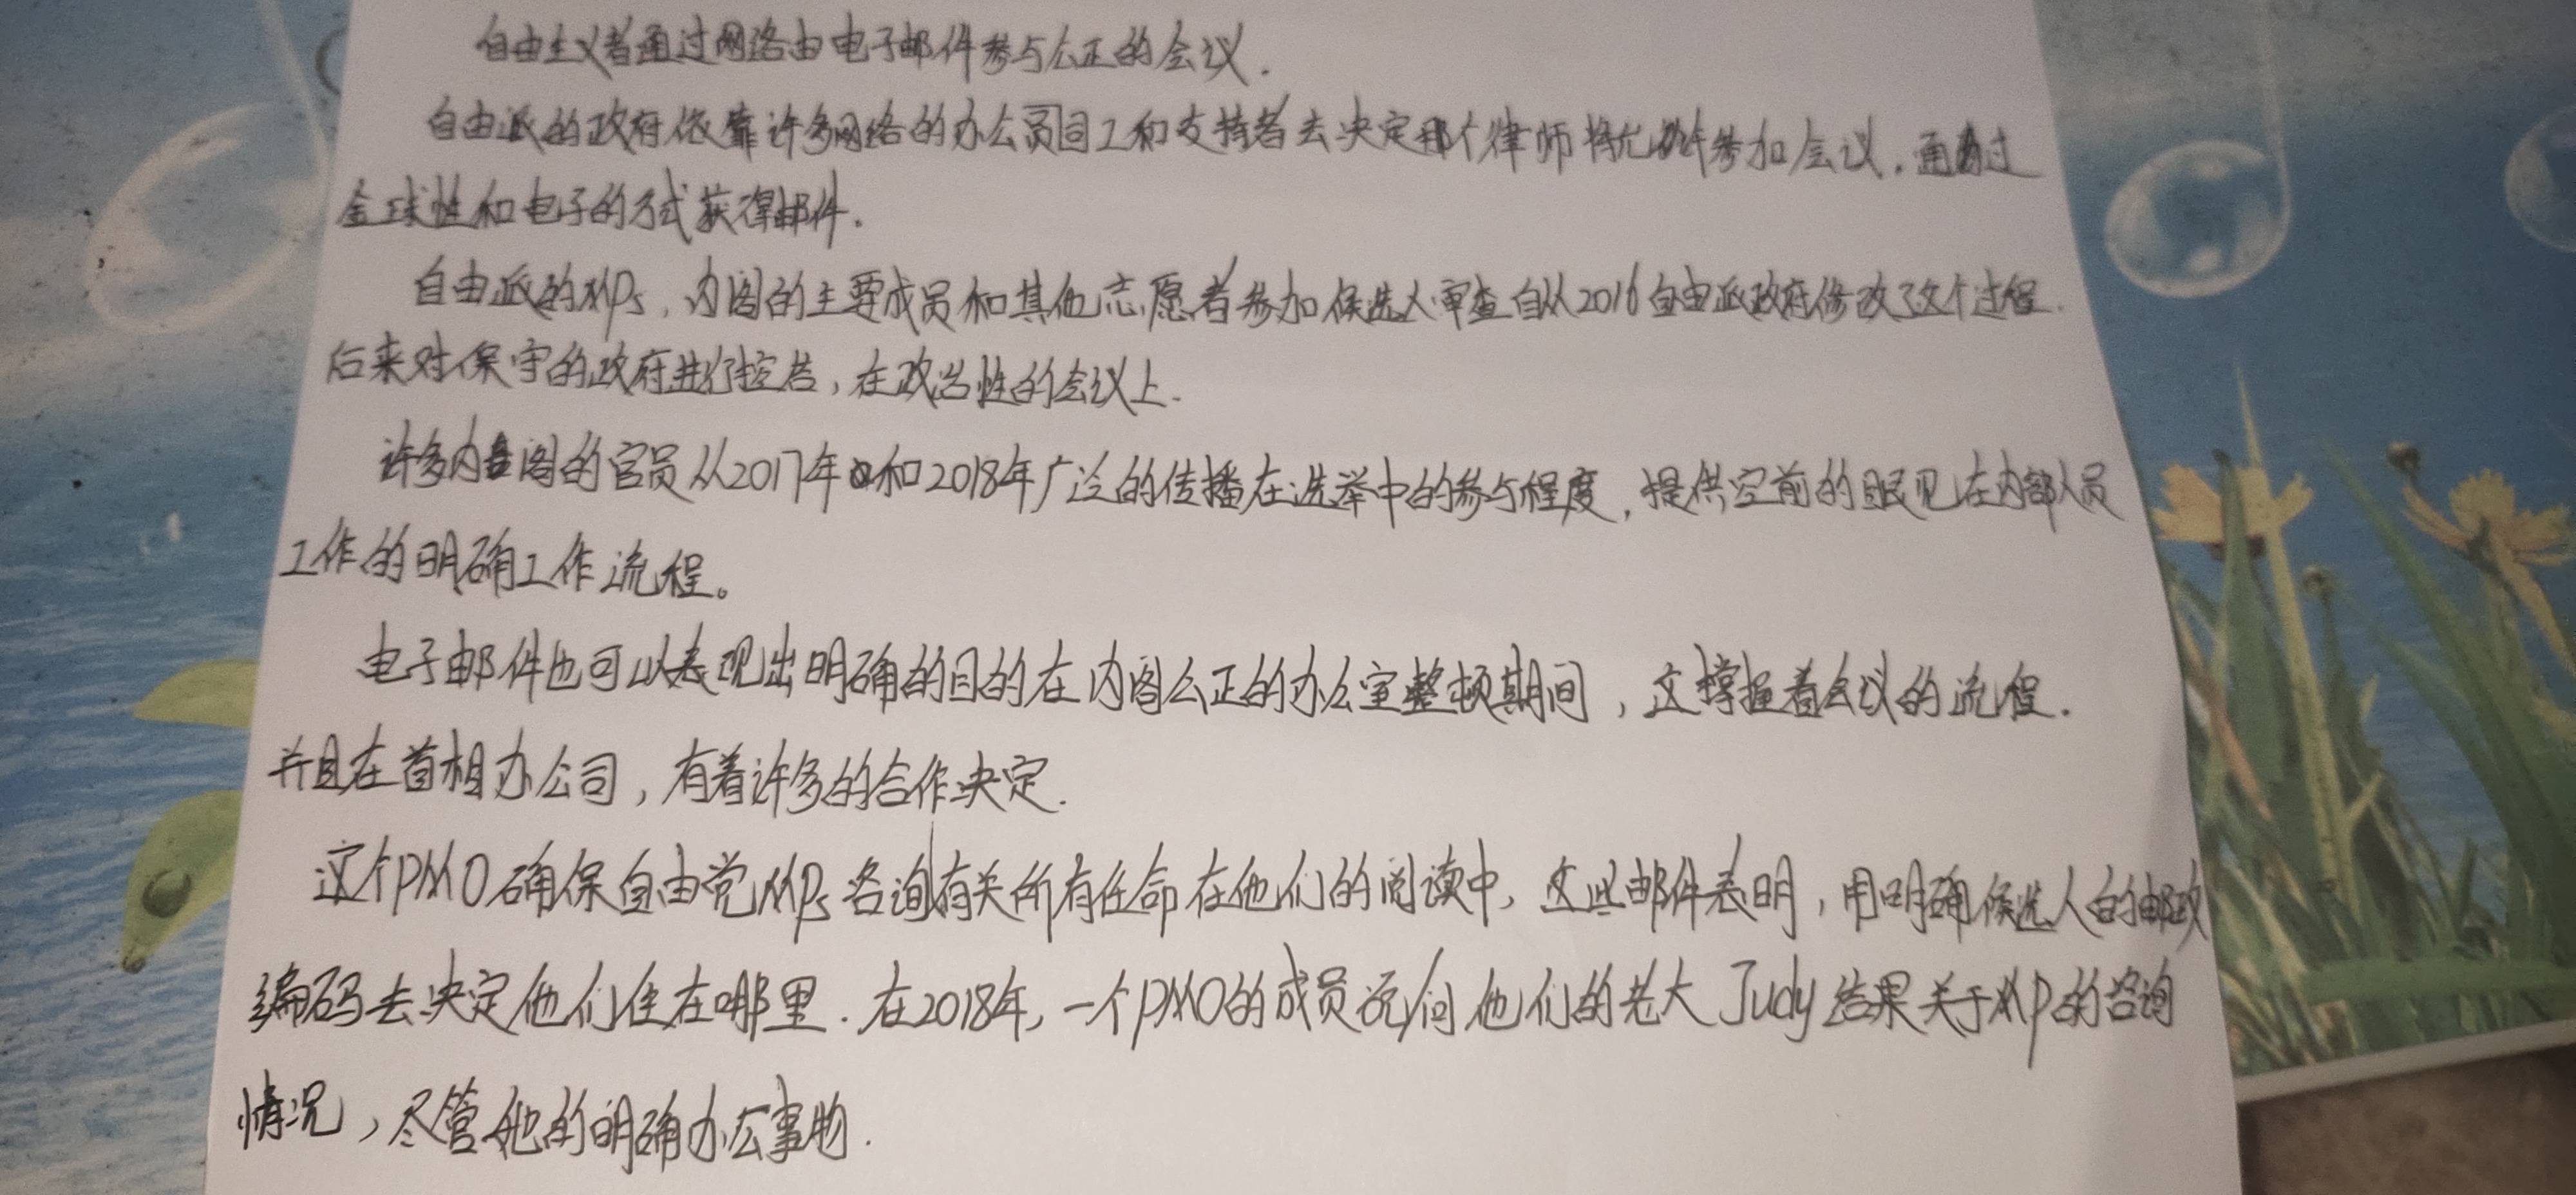 自由主义者通过网络由电子邮件参与公正的会议.
自由派的政府依靠许多网络的办公员同工和支持者去决定那个律师将允许参加会议，通过
全球性和电子的方式获得邮件.
自由派的MPs，内阁的主要成员和其他志愿者参加候选人审查自从2016自由派政府修改了这个过程.
后来对保守的政府进行控告，在政治性的会议上.
许多内阁的官员从2017年和2018年广泛的传播在选举中的参与程度，提供空前的眼见在内部人员
工作的明确工作流程。
电子邮件也可以表现出明确的目的在内阁公正的办公室整顿期间，这掌握着会议的流程.
并且在首相办公司，有着许多的合作决定.
这个PMO确保自由党MPs咨询有关所有任命在他们的阅读中，这些邮件表明，用明确候选人的邮政
编码去决定他们住在哪里.在2018年，一个PMO的成员询问他们的老大Judy结果关于MP的咨询
情况，尽管她的明确办公事物.